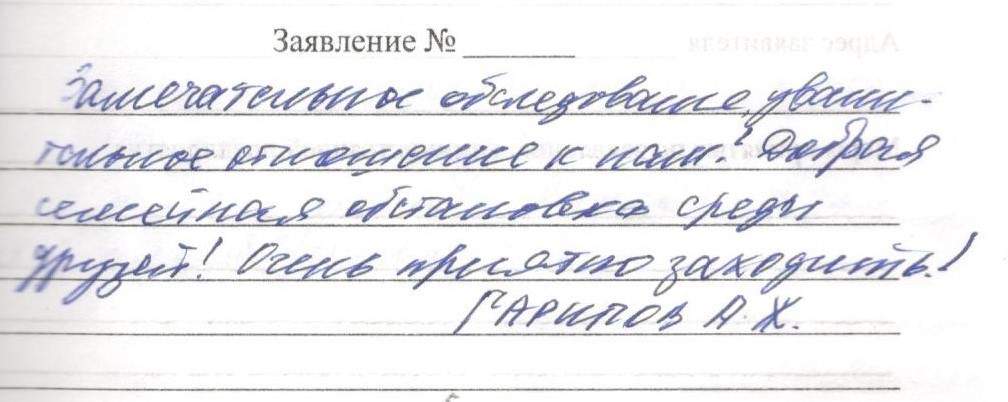 Заявление № ________
Замечательное обследование, уважи-
тельное отношение к нам! Добрая
семейная обстановка среды
друзей! Очень приятно заходить!
ГАРИПОВ А.Ж.